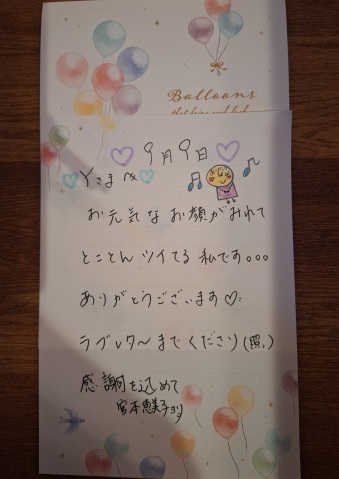 Balloons
9月9日
Yさまへ
お元気なお顔がみれて
とことんツイてる私です。。。
ありがとうございます♡
ラブレターまでくださり(照)
感謝を込めて
宮本恵美子より